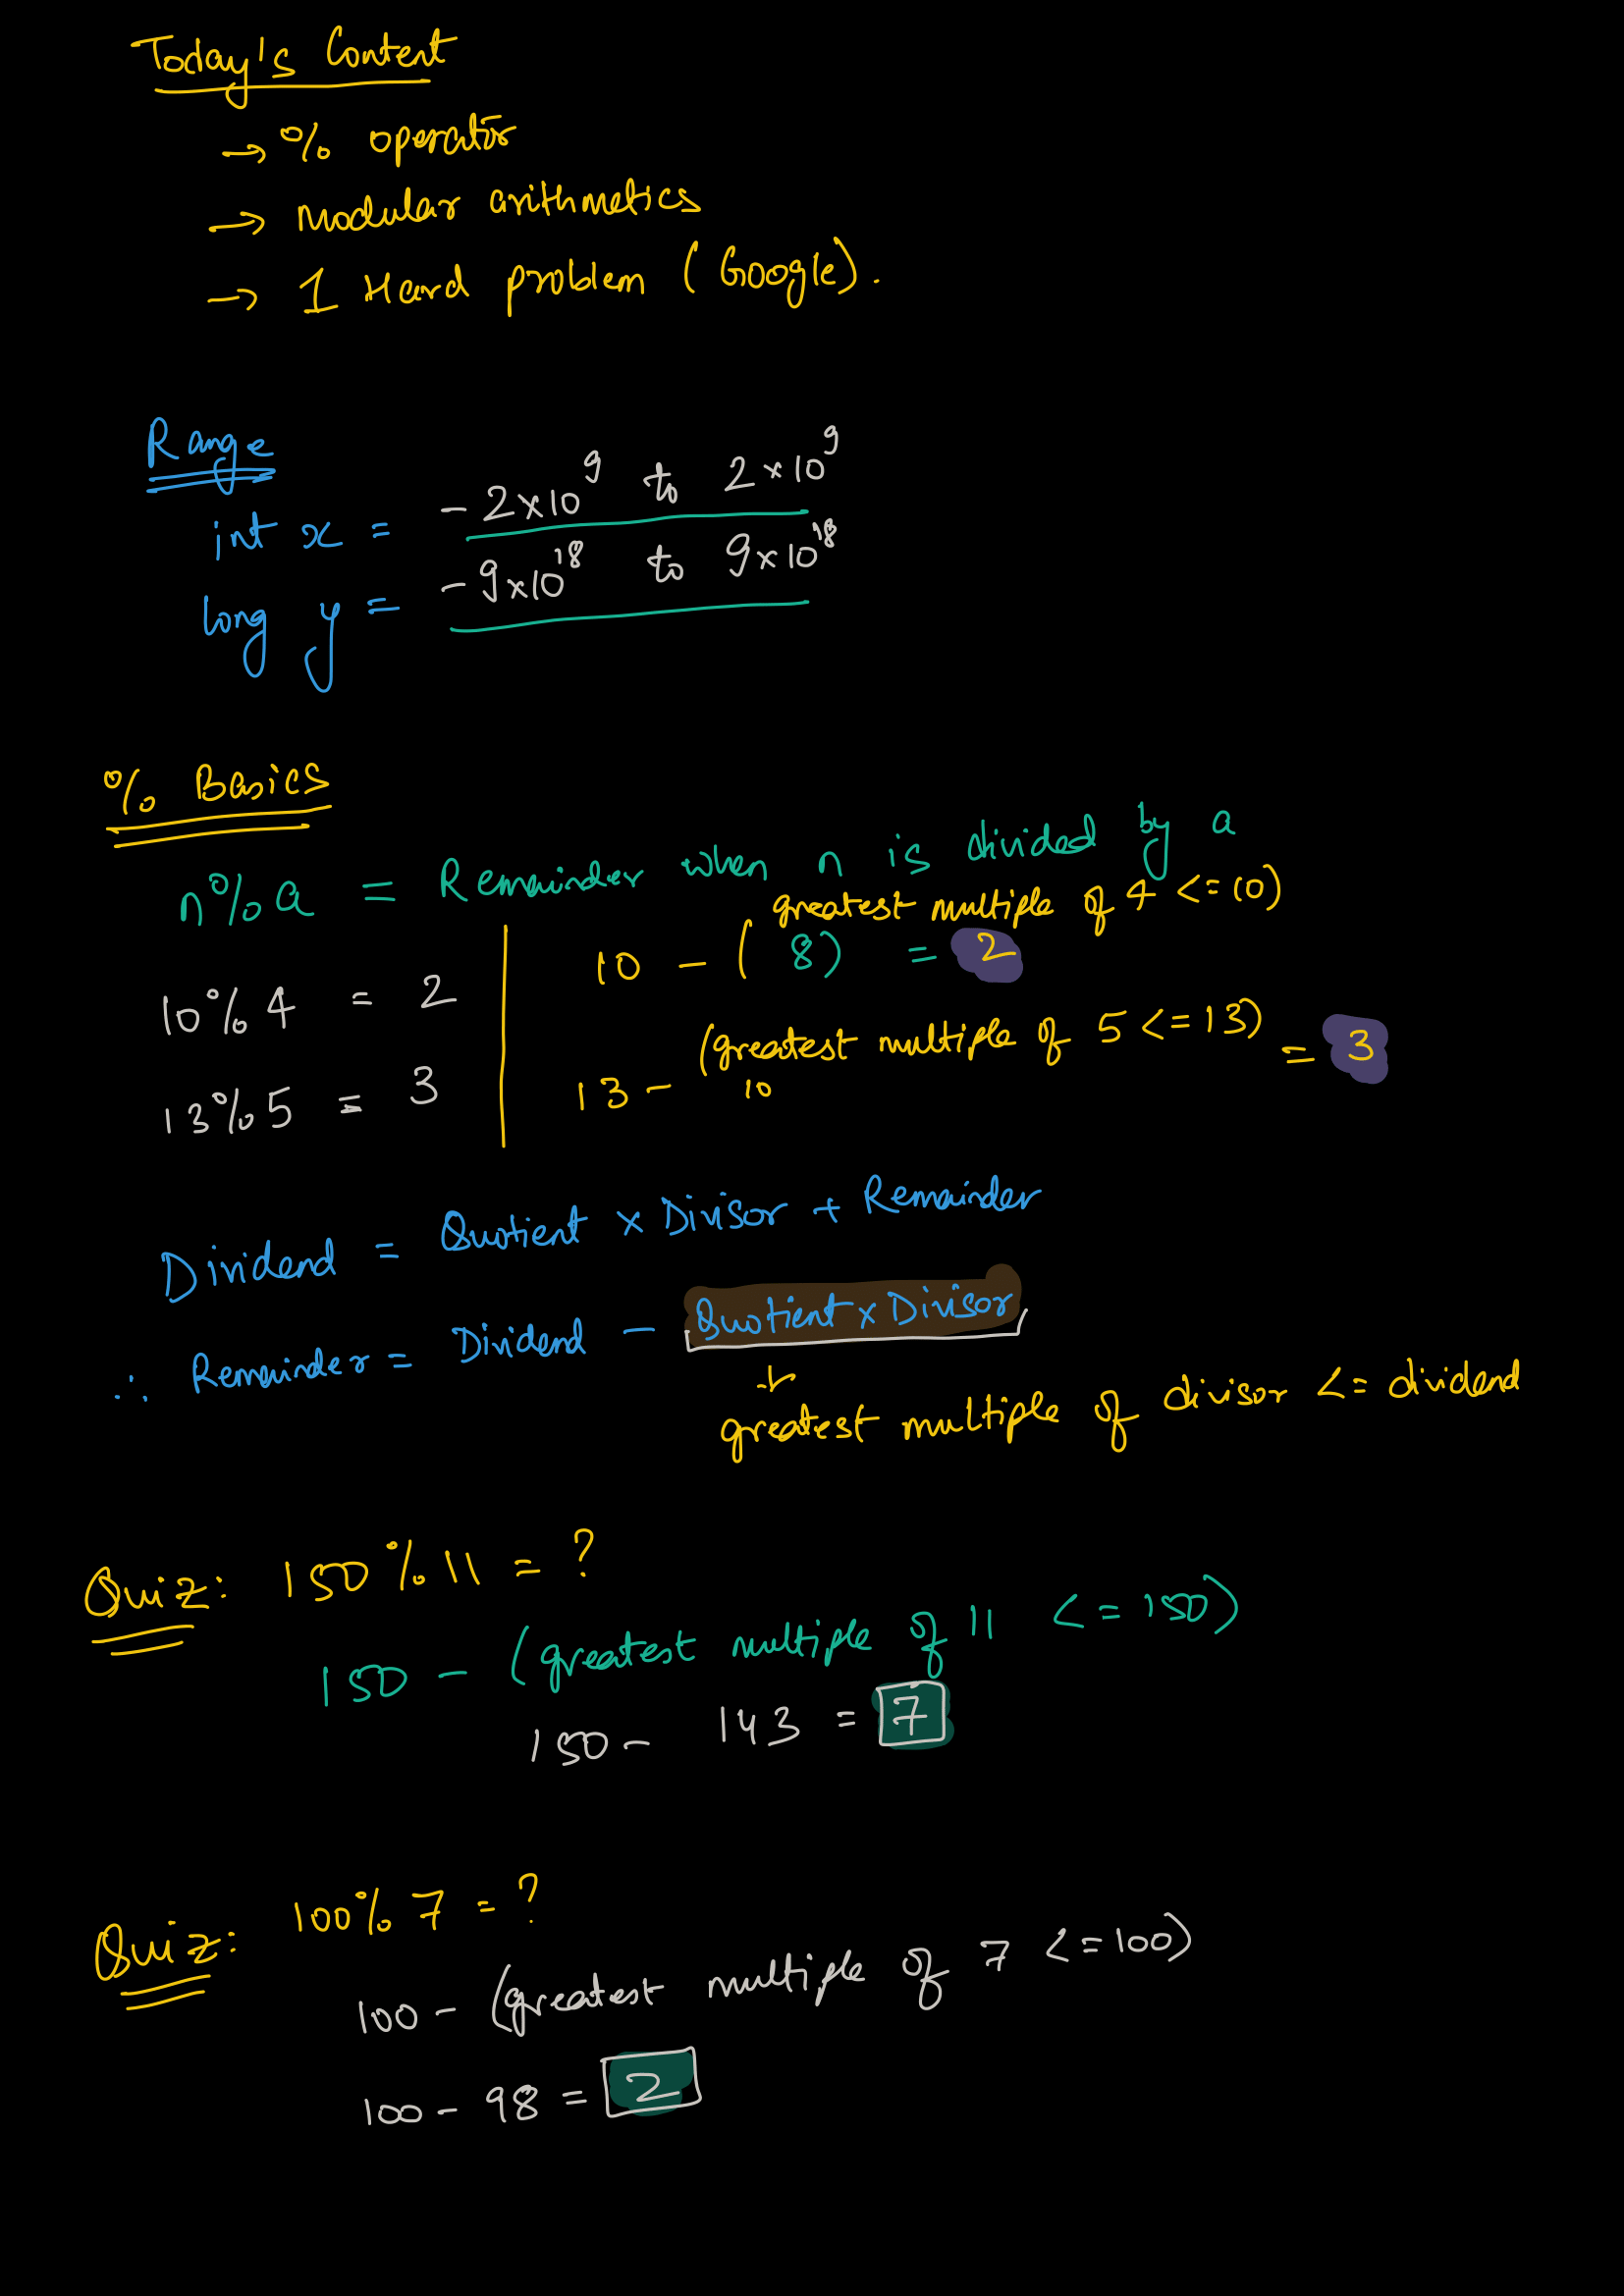 Today's Content
→ % operator
→ Modular arithmetics
→ 1 Hard problem (Google).
Range
int x = -2×10⁹ to 2×10⁹
long y = -9×10¹⁸ to 9×10¹⁸
% Basics
n%a = Remainder when n is divided by a
greatest multiple of 4 <=10)
10%4 = 2 | 10 - ( 8) = 2
13%5 = 3 | 13 - (greatest multiple of 5 <=13) = 3
10
Dividend = Quotient × Divisor + Remainder
∴ Remainder = Dividend - Quotient × Divisor
↓
greatest multiple of divisor <= dividend
Quiz: 150 % 11 = ?
150 - (greatest multiple of 11 <= 150)
150 - 143 = 7
Quiz: 100% 7 = ?
100 - (greatest multiple of 7 <=100)
100 - 98 = 2